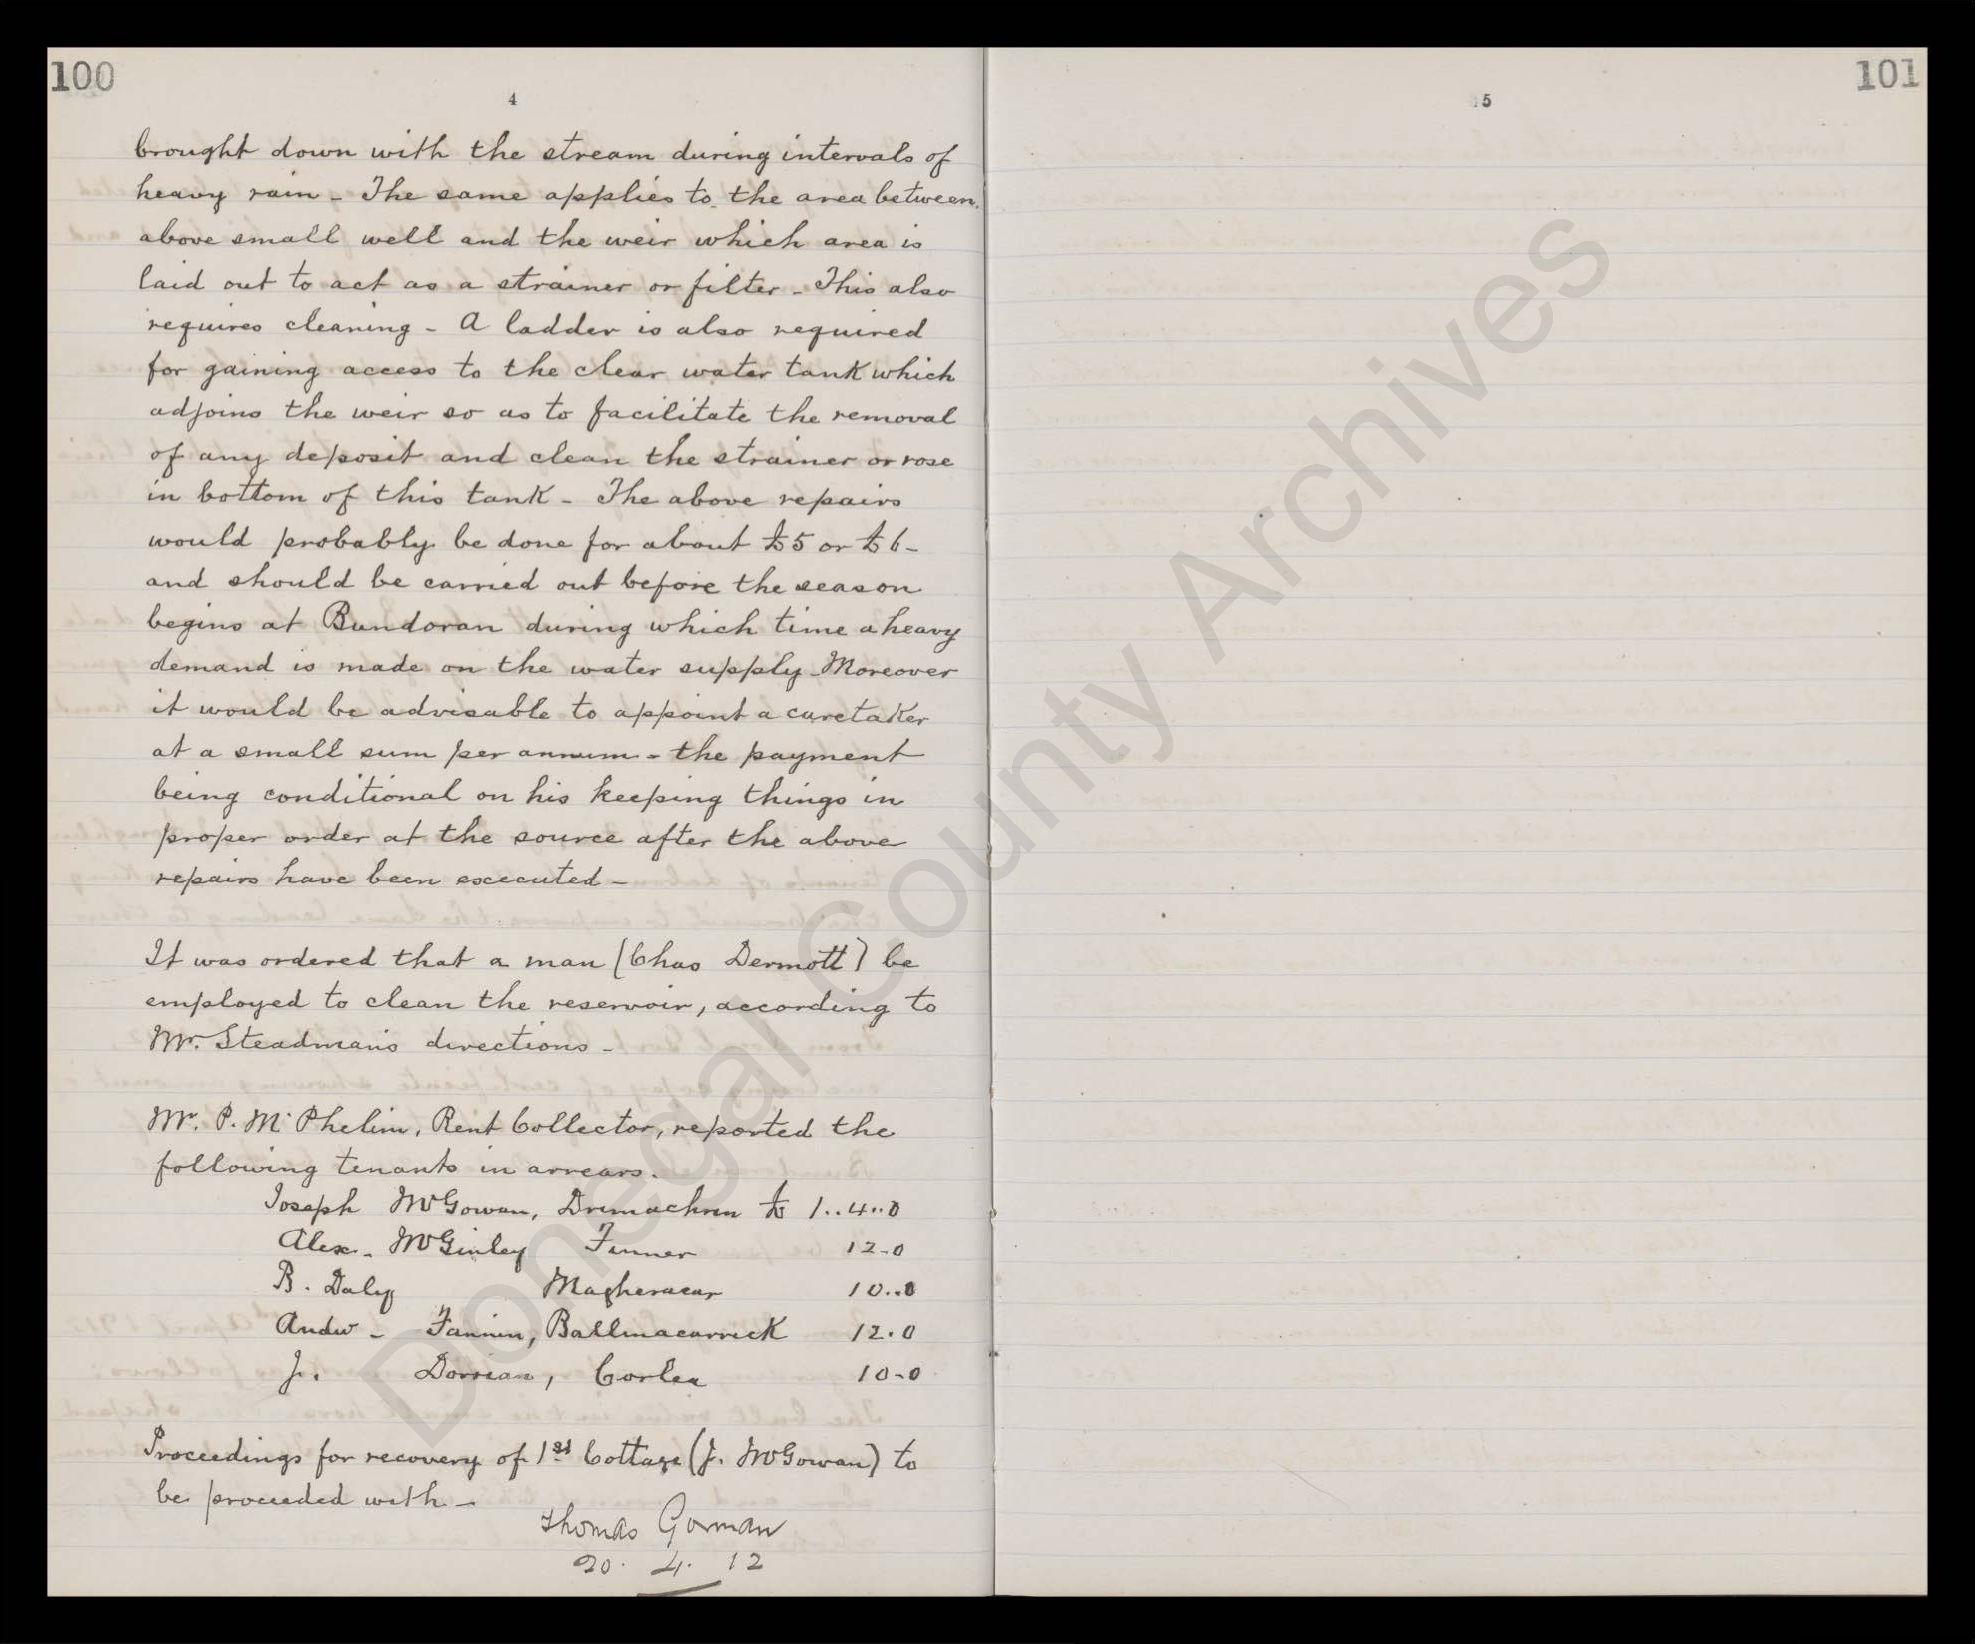 100
4
brought down with the stream during intervals of
heavy rain - The same applies to the area between
above small well and the weir which area is
laid out to act as a strainer or filter - This also
requires cleaning - A ladder is also required
for gaining access to the clear water tank which
adjoins the weir so as to facilitate the removal
of any deposit and clean the strainer or rose
in bottom of this tank - The above repairs
would probably be done for about £5 or £6-
and should be carried out before the season
begins at Bundoran during which time a heavy
demand is made on the water supply - Moreover
it would be advisable to appoint a caretaker
at a small sum per annum - the payment
being conditional on his keeping things in
proper order at the source after the above
repairs have been excecuted -
It was ordered that a man (Chas Dermott) be
employed to clean the reservoir, according to
Mr. Steadman's directions -
Mr. P. McPhelim, Rent Collector, reported the
following tenants in arrears.
Joseph McGowan, £ 1..4..0
Alex. McGinley Finner 12-0
B. Daly Magheracar 10..0
Andw - Fannin, Ballinacarrick 12.0
J. Dorrian, Corlea 10-0
Proceedings for recovery of 1st Cottage (J. McGowan) to
be proceeded with -
Thomas Gorman
20. 4. 12
101
5
Donegal County Archives